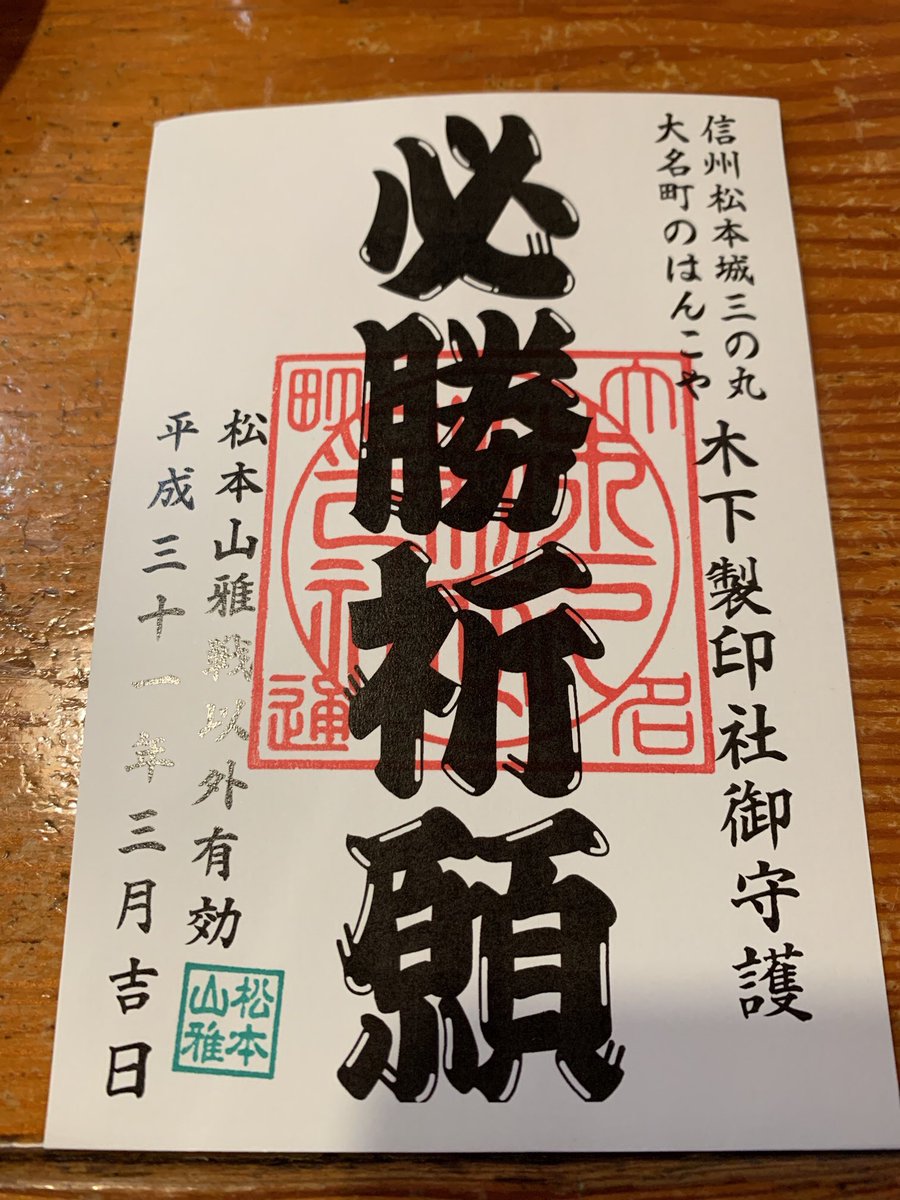 信州松本城三の丸
大名町のはんこや
木下製印社御守護
必勝祈願
大名
町通
松本山雅戦以外有効
松本
山雅
平成三十一年三月吉日